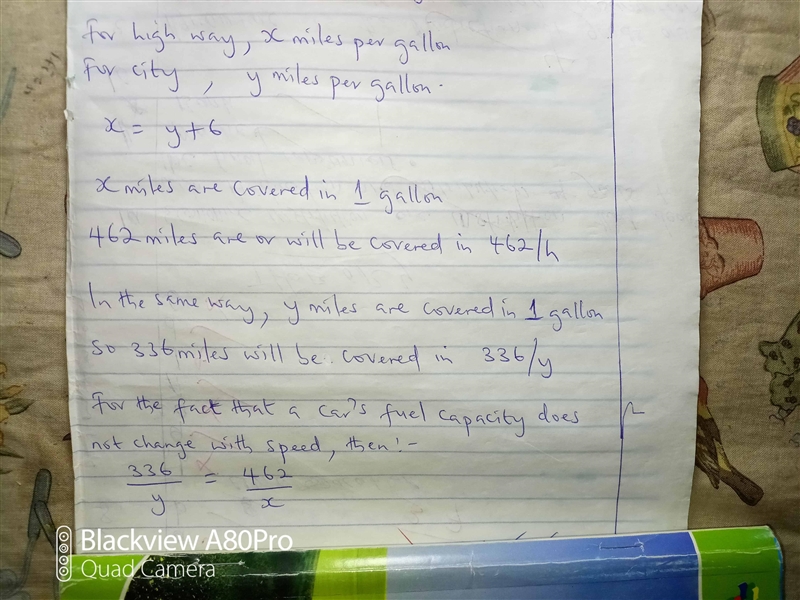 For high way, x miles per gallon
For city , y miles per gallon.
x = y+6
x miles are covered in 1 gallon
462 miles are or will be covered in 462/h
In the same way, y miles are covered in 1 gallon
So 336 miles will be covered in 336/y
For the fact that a car's fuel capacity does
not change with speed, then:-
336/y = 462/x
Blackview A80Pro
Quad Camera